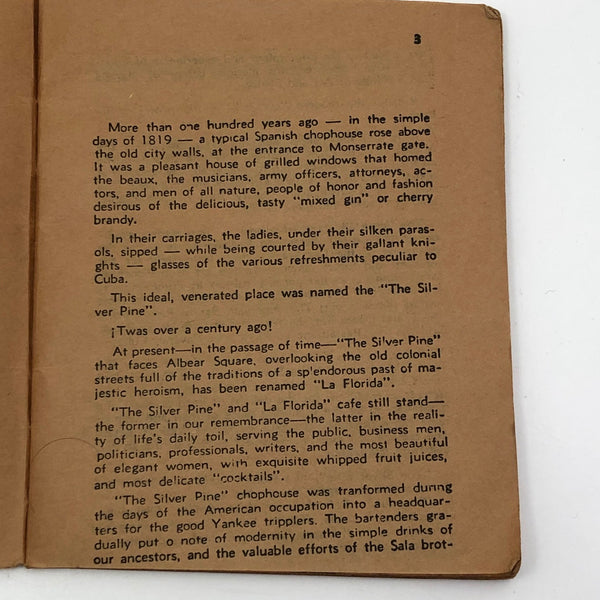 3
More than one hundred years ago — in the simple
days of 1819 — a typical Spanish chophouse rose above
the old city walls, at the entrance to Monserrate gate.
It was a pleasant house of grilled windows that homed
the beaux, the musicians, army officers, attorneys, ac-
tors, and men of all nature, people of honor and fashion
desirous of the delicious, tasty "mixed gin" or cherry
brandy.
In their carriages, the ladies, under their silken paras-
ols, sipped — while being courted by their gallant kni-
ghts — glasses of the various refreshments peculiar to
Cuba.
This ideal, venerated place was named the "The Sil-
ver Pine".
¡Twas over a century ago!
At present—in the passage of time—"The Silver Pine"
that faces Albear Square, overlooking the old colonial
streets full of the traditions of a splendorous past of ma-
jestic heroism, has been renamed "La Florida".
"The Silver Pine" and "La Florida" cafe still stand—
the former in our remembrance—the latter in the reali-
ty of life's daily toil, serving the public, business men,
politicians, professionals, writers, and the most beautiful
of elegant women, with exquisite whipped fruit juices,
and most delicate "cocktails".
"The Silver Pine" chophouse was tranformed during
the days of the American occupation into a headquar-
ters for the good Yankee tripplers. The bartenders gra-
dually put o note of modernity in the simple drinks of
our ancestors, and the valuable efforts of the Sala brot-